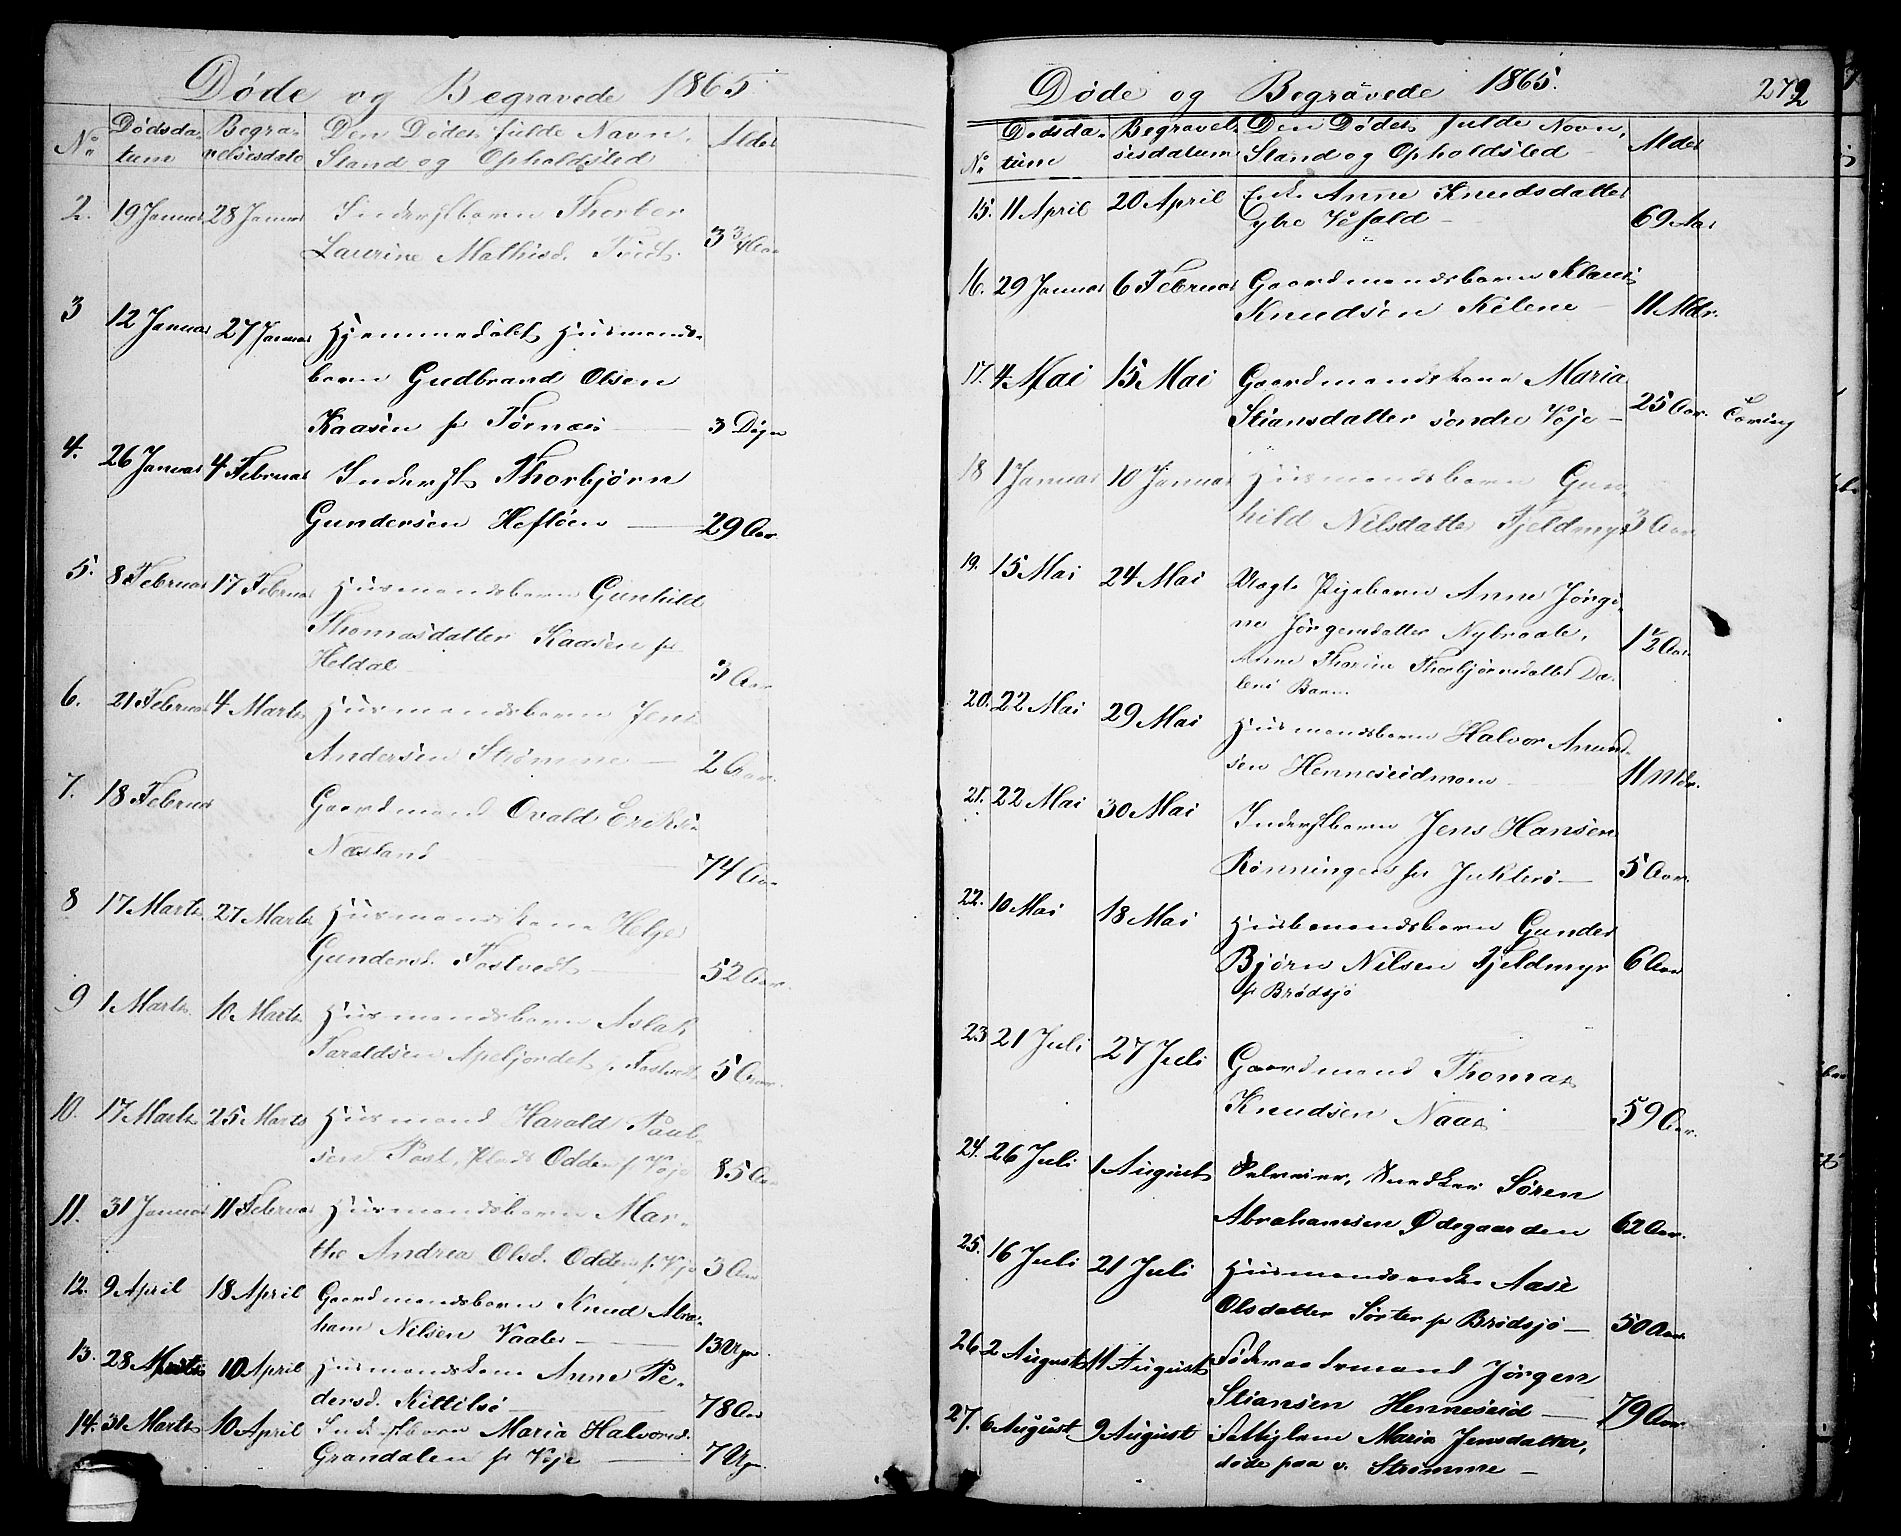 Døde og Begravede 1865
No Dødsda- Begra- Den Dødes fulde Navn, Alder
tum velsesdato Stand og Opholdsted
2. 19 Januar 28 Januar Inderstbarn Thorber
Laurine Mathisd. 3 3/4 Aar
3 12 Januar 27 Januar Hjemmedøbt Husmands-
barn Gudbrand Olsen
Kaasen p Tørnæs 3 Døgn
4. 26 Januar 4 Februar Inderst Thorbjørn
Gundersen Hefløen 29 Aar
5. 8 Februar 17 Februar Husmandsbarn Gunhild
Thomasdatter Kaasen p
Heldal 3 Aar
6. 21 Februar 4 Marts Husmandsbarn Jens
Andersen Strømme 2 Aar.
7. 18 Februar Gaardmand Ovald Eriksen
Næsland 74 Aar
8 17 Marts 27 Marts Husmandskone Helge
Gundersd. Tostvedt 52 Aar.
9 1 Marts 10 Marts Husmandsbarn Aslak
Taraldsen Apeljordet p. Tostvedt 5 Aar.
10. 17 Marts 25 Marts Husmand Harald Paul-
sen Post, Plads Odden p. Voje 85 Aar
11. 31 Januar 11 Februar Husmandsbarn Mar-
the Andrea Olsd. Odden p. Voje 3 Aar
12. 9 April 18 April Gaardmandsbarn Knud Abra-
ham Nilsen Vaaler 13 Uger
13. 28 Marts 10 April Husmandskone Anne Pe-
dersd. Kittilsø 78 Aar
14. 31 Marts 10 April Inderstbarn Maria Halvorsd.
Grandalen p Voje 7 Uger.
Døde og Begravede 1865. 272
No Dødsda- Begravel- Den Dødes fulde Navn, Alder
tum sesdatum Stand og Opholdsted
15. 11 April 20 April Enke Anne Knudsdatter
Ytre Vefald 69 Aar
16. 29 Januar 6 Februar Gaardmandsbarn Klaus
Knudsen Kilene 11 Mdr.
17. 4 Mai 15 Mai Gaardmandskone Maria
Stiansdatter søndre Voje 25 Aar.
18 1 Januar 10 Januar Husmandsbarn Gun-
hild Nilsdatter Fjeldmyr 3 Aar
19. 15 Mai 24 Mai Uægte Pigebarn Anne Jørgi-
ne Jørgensdatter Nybraate,
Anne Thorine Thorbjørnsdatter Da-
lens Barn. 1 1/2 Aar
20. 22 Mai 29 Mai Husmandsbarn Halvor Amund-
sen Henneseidmoen 11 Mdr.
21. 22 Mai 30 Mai Inderstbarn Jens Hansen
Rønningen p Jukterø 5 Aar.
22. 10 Mai 18 Mai Husbmandsbarn Gunder
Bjørn Nilsen Fjeldmyr 6 Aar
p Brødsjø
23 21 Juli 27 Juli Gaardmand Thomas
Knudsen Naas 59 Aar.
24. 26 Juli 1 August Snedker Søren
Abrahamsen Ødegaarden 62 Aar.
25. 16 Juli 21 Juli Husmandsenke Aase
Olsdatter Sørter p Brødsjø 50 Aar
26 2 August 11 August Føderaadsmand Jørgen
Stiansen Henneseid 79 Aar.
27. 6 August 9 August Fattiglem Maria Jensdatter,
døde paa v. Strømme